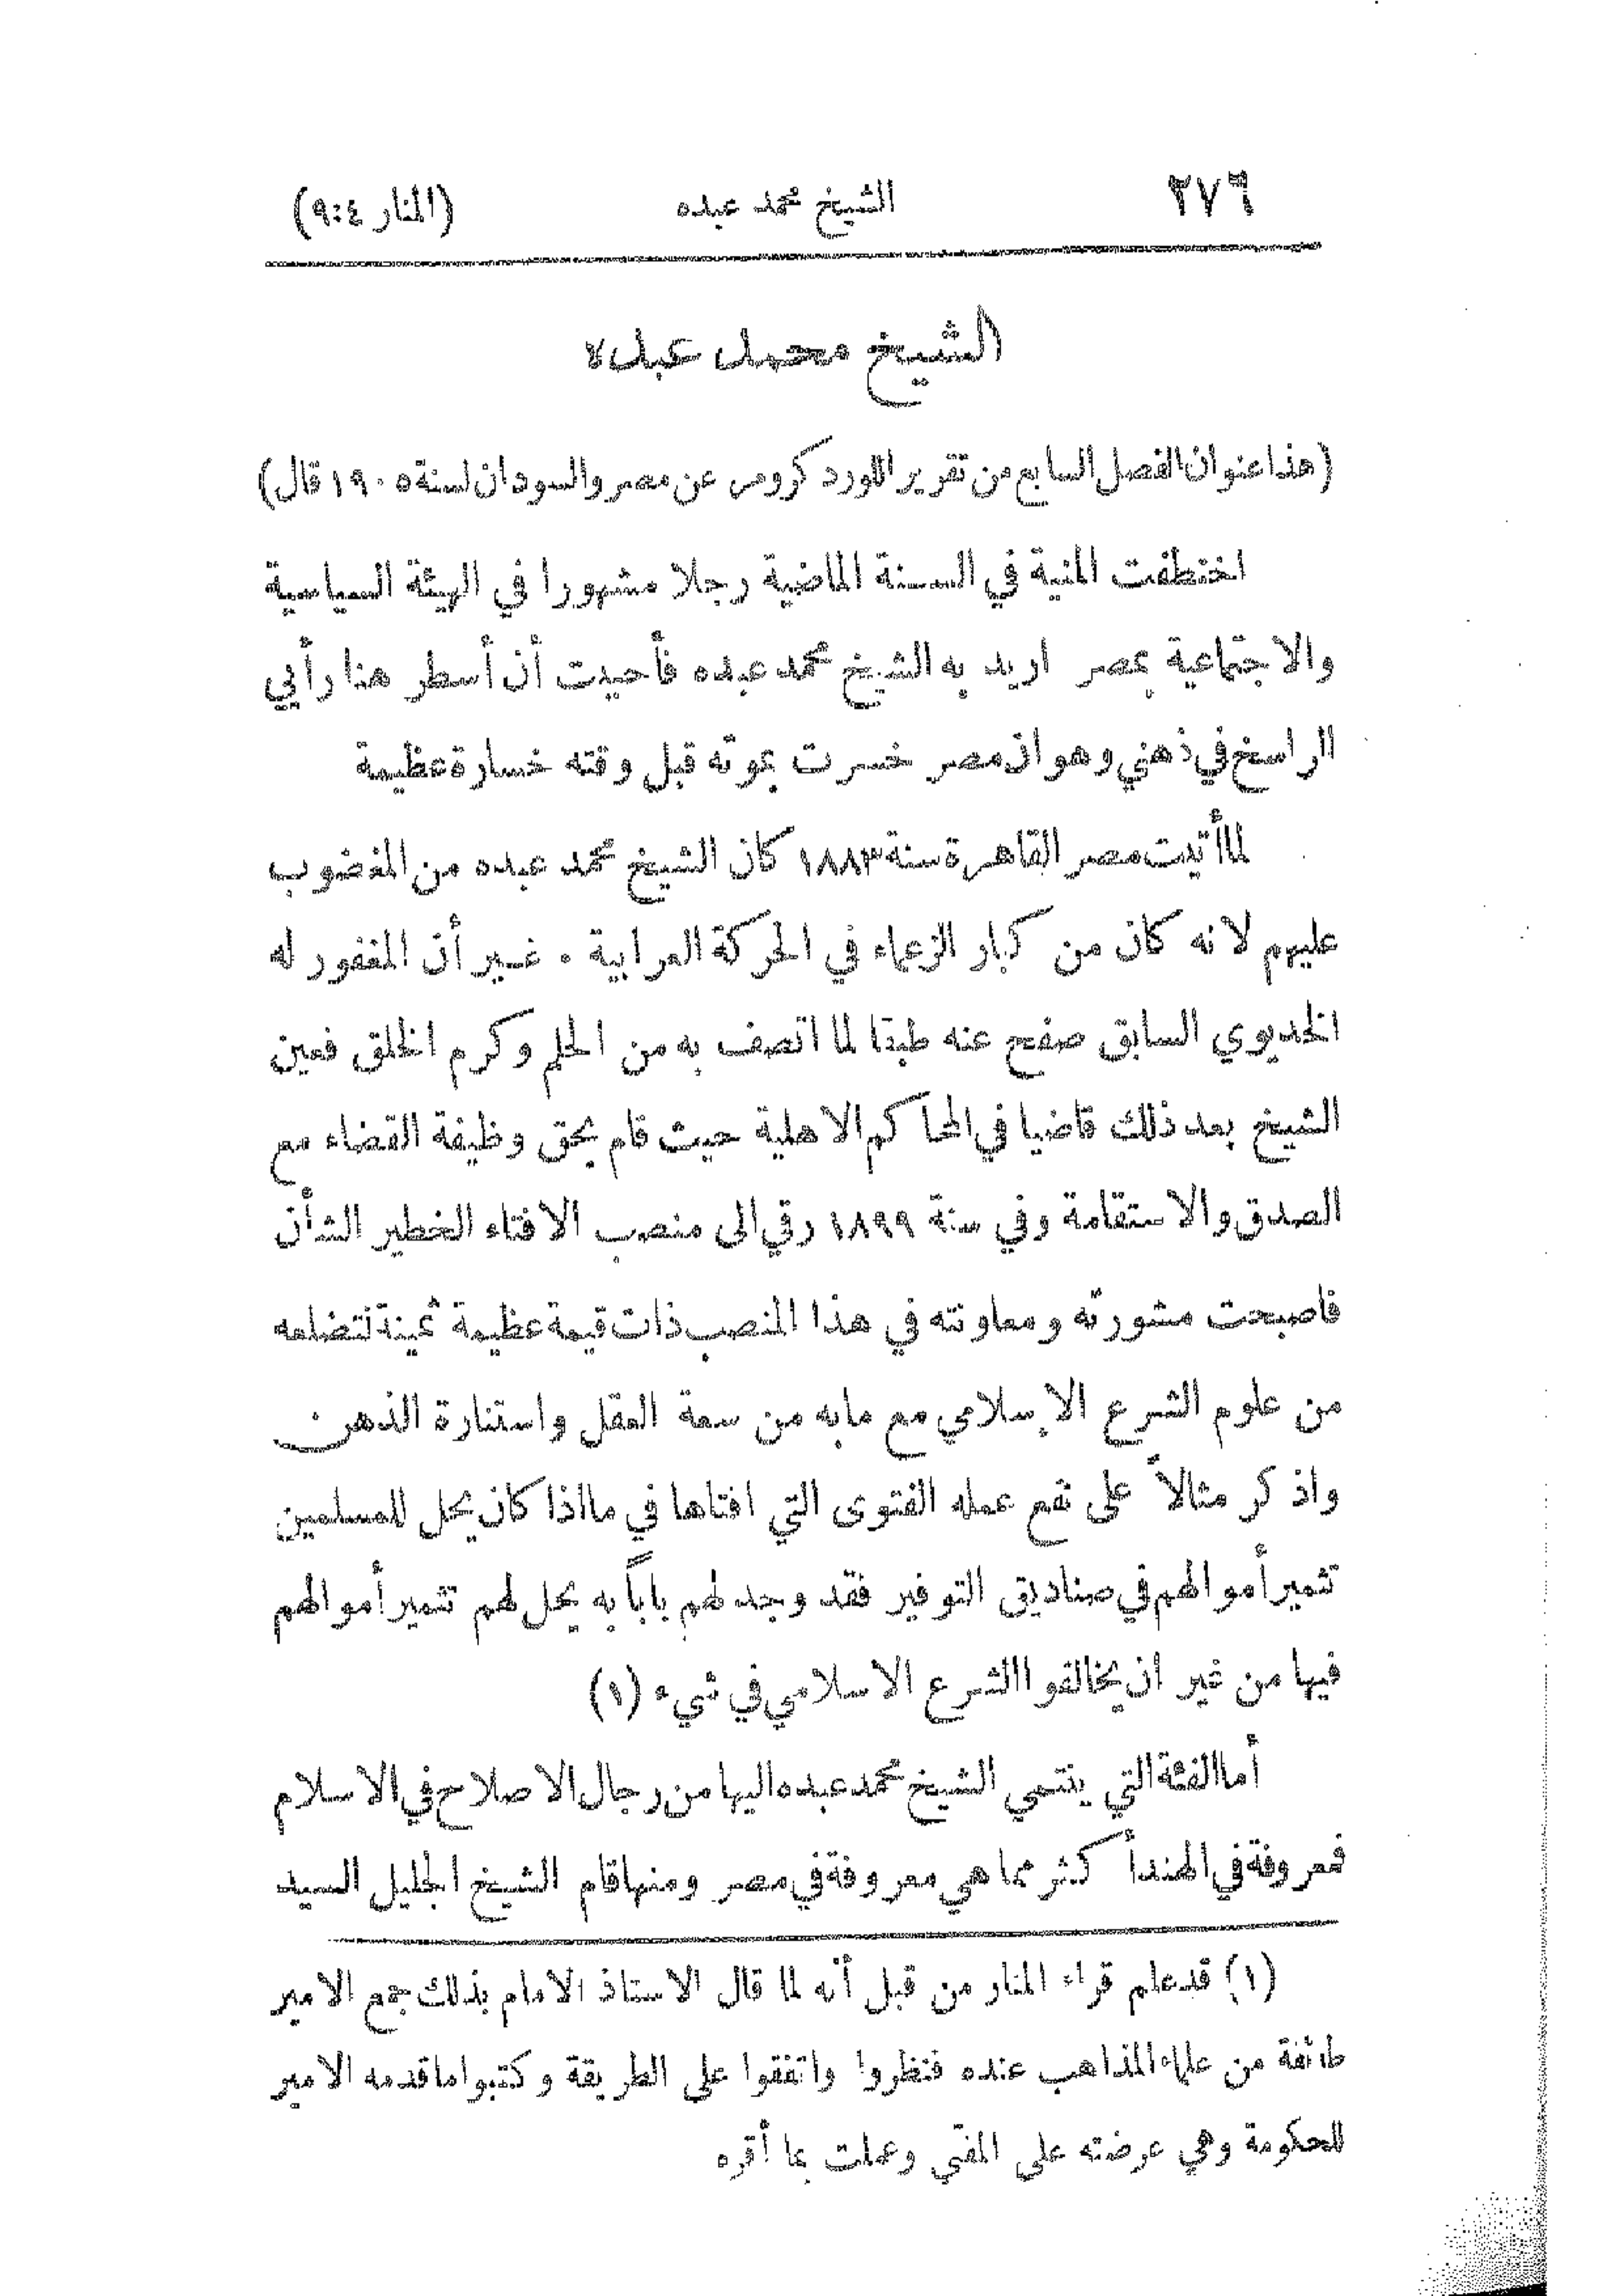 ٢٧٦ الشيخ محمد عبده (المنار ٤:٩)
الشيخ محمد عبده
(هذا عنوان الفصل السابع من تقرير اللورد كرومر عن مصر والسودان لسنة ١٩٠٥ قال)
اختطفت المنية في السنة الماضية رجلا مشهورا في الهيئة السياسية
والاجتماعية بمصر اريد به الشيخ محمد عبده فأحببت أن أسطر هنا رأيي
الراسخ في ذهني وهو ان مصر خسرت بموته قبل وقته خسارة عظيمة
لما أتيت مصر القاهرة سنة ١٨٨٣ كان الشيخ محمد عبده من المغضوب
عليهم لانه كان من كبار الزعماء في الحركة العرابية . غير أن المغفور له
الخديوي السابق صفح عنه طبقا لما اتصف به من الحلم وكرم الخلق فعين
الشيخ بعد ذلك قاضيا في المحاكم الاهلية حيث قام بحق وظيفة القضاء مع
الصدق والاستقامة وفي سنة ١٨٩٩ رقي الى منصب الافتاء الخطير الشأن
فاصبحت مشورته ومعاونته في هذا المنصب ذات قيمة عظيمة ثمينة لتضلعه
من علوم الشرع الاسلامي مع مابه من سعة العقل واستنارة الذهن .
واذكر مثالاً على نفع عمله الفتوى التي افتاها في ما اذا كان يحل للمسلمين
تثمير أموالهم في صناديق التوفير فقد وجد لهم باباً به يحل لهم تثمير أموالهم
فيها من غير ان يخالفوا الشرع الاسلامي في شيء (١)
أما الفئة التي ينتمي الشيخ محمد عبده اليها من رجال الاصلاح في الاسلام
فمعروفة في الهند أكثر مما هي معروفة في مصر ومنها قام الشيخ الجليل السيد
(١) قد علم قراء المنار من قبل أنه لما قال الاستاذ الامام بذلك جمع الامير
طائفة من علماء المذاهب عنده فنظروا واتفقوا على الطريقة وكتبوا ما قدمه الامير
للحكومة وهي عرضته على المفتي وعملت بما أقره